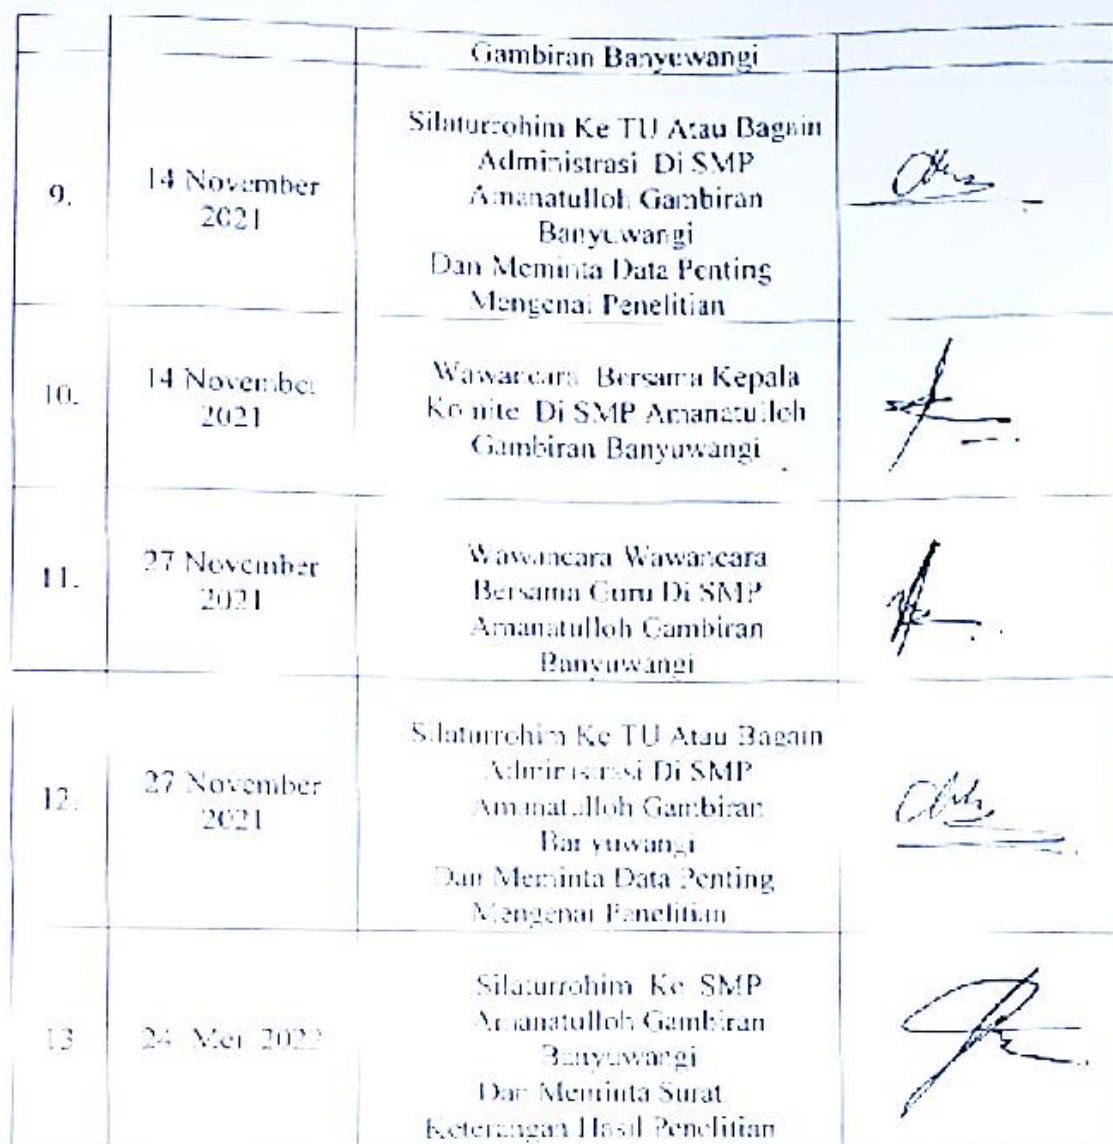 Gambiran Banyuwangi
9.
14 November
2021
Silaturrohim Ke TU Atau Bagain
Administrasi Di SMP
Amanatulloh Gambiran
Banyuwangi
Dan Meminta Data Penting
Mengenai Penelitian
10.
14 November
2021
Wawancara Bersama Kepala
Komite Di SMP Amanatulloh
Gambiran Banyuwangi
11.
27 November
2021
Wawancara Wawancara
Bersama Guru Di SMP
Amanatulloh Gambiran
Banyuwangi
12.
27 November
2021
Silaturrohim Ke TU Atau Bagain
Administrasi Di SMP
Amanatulloh Gambiran
Banyuwangi
Dan Meminta Data Penting
Mengenai Penelitian
13
24 Mei 2022
Silaturrohim Ke SMP
Amanatulloh Gambiran
Banyuwangi
Dan Meminta Surat
Keterangan Hasil Penelitian